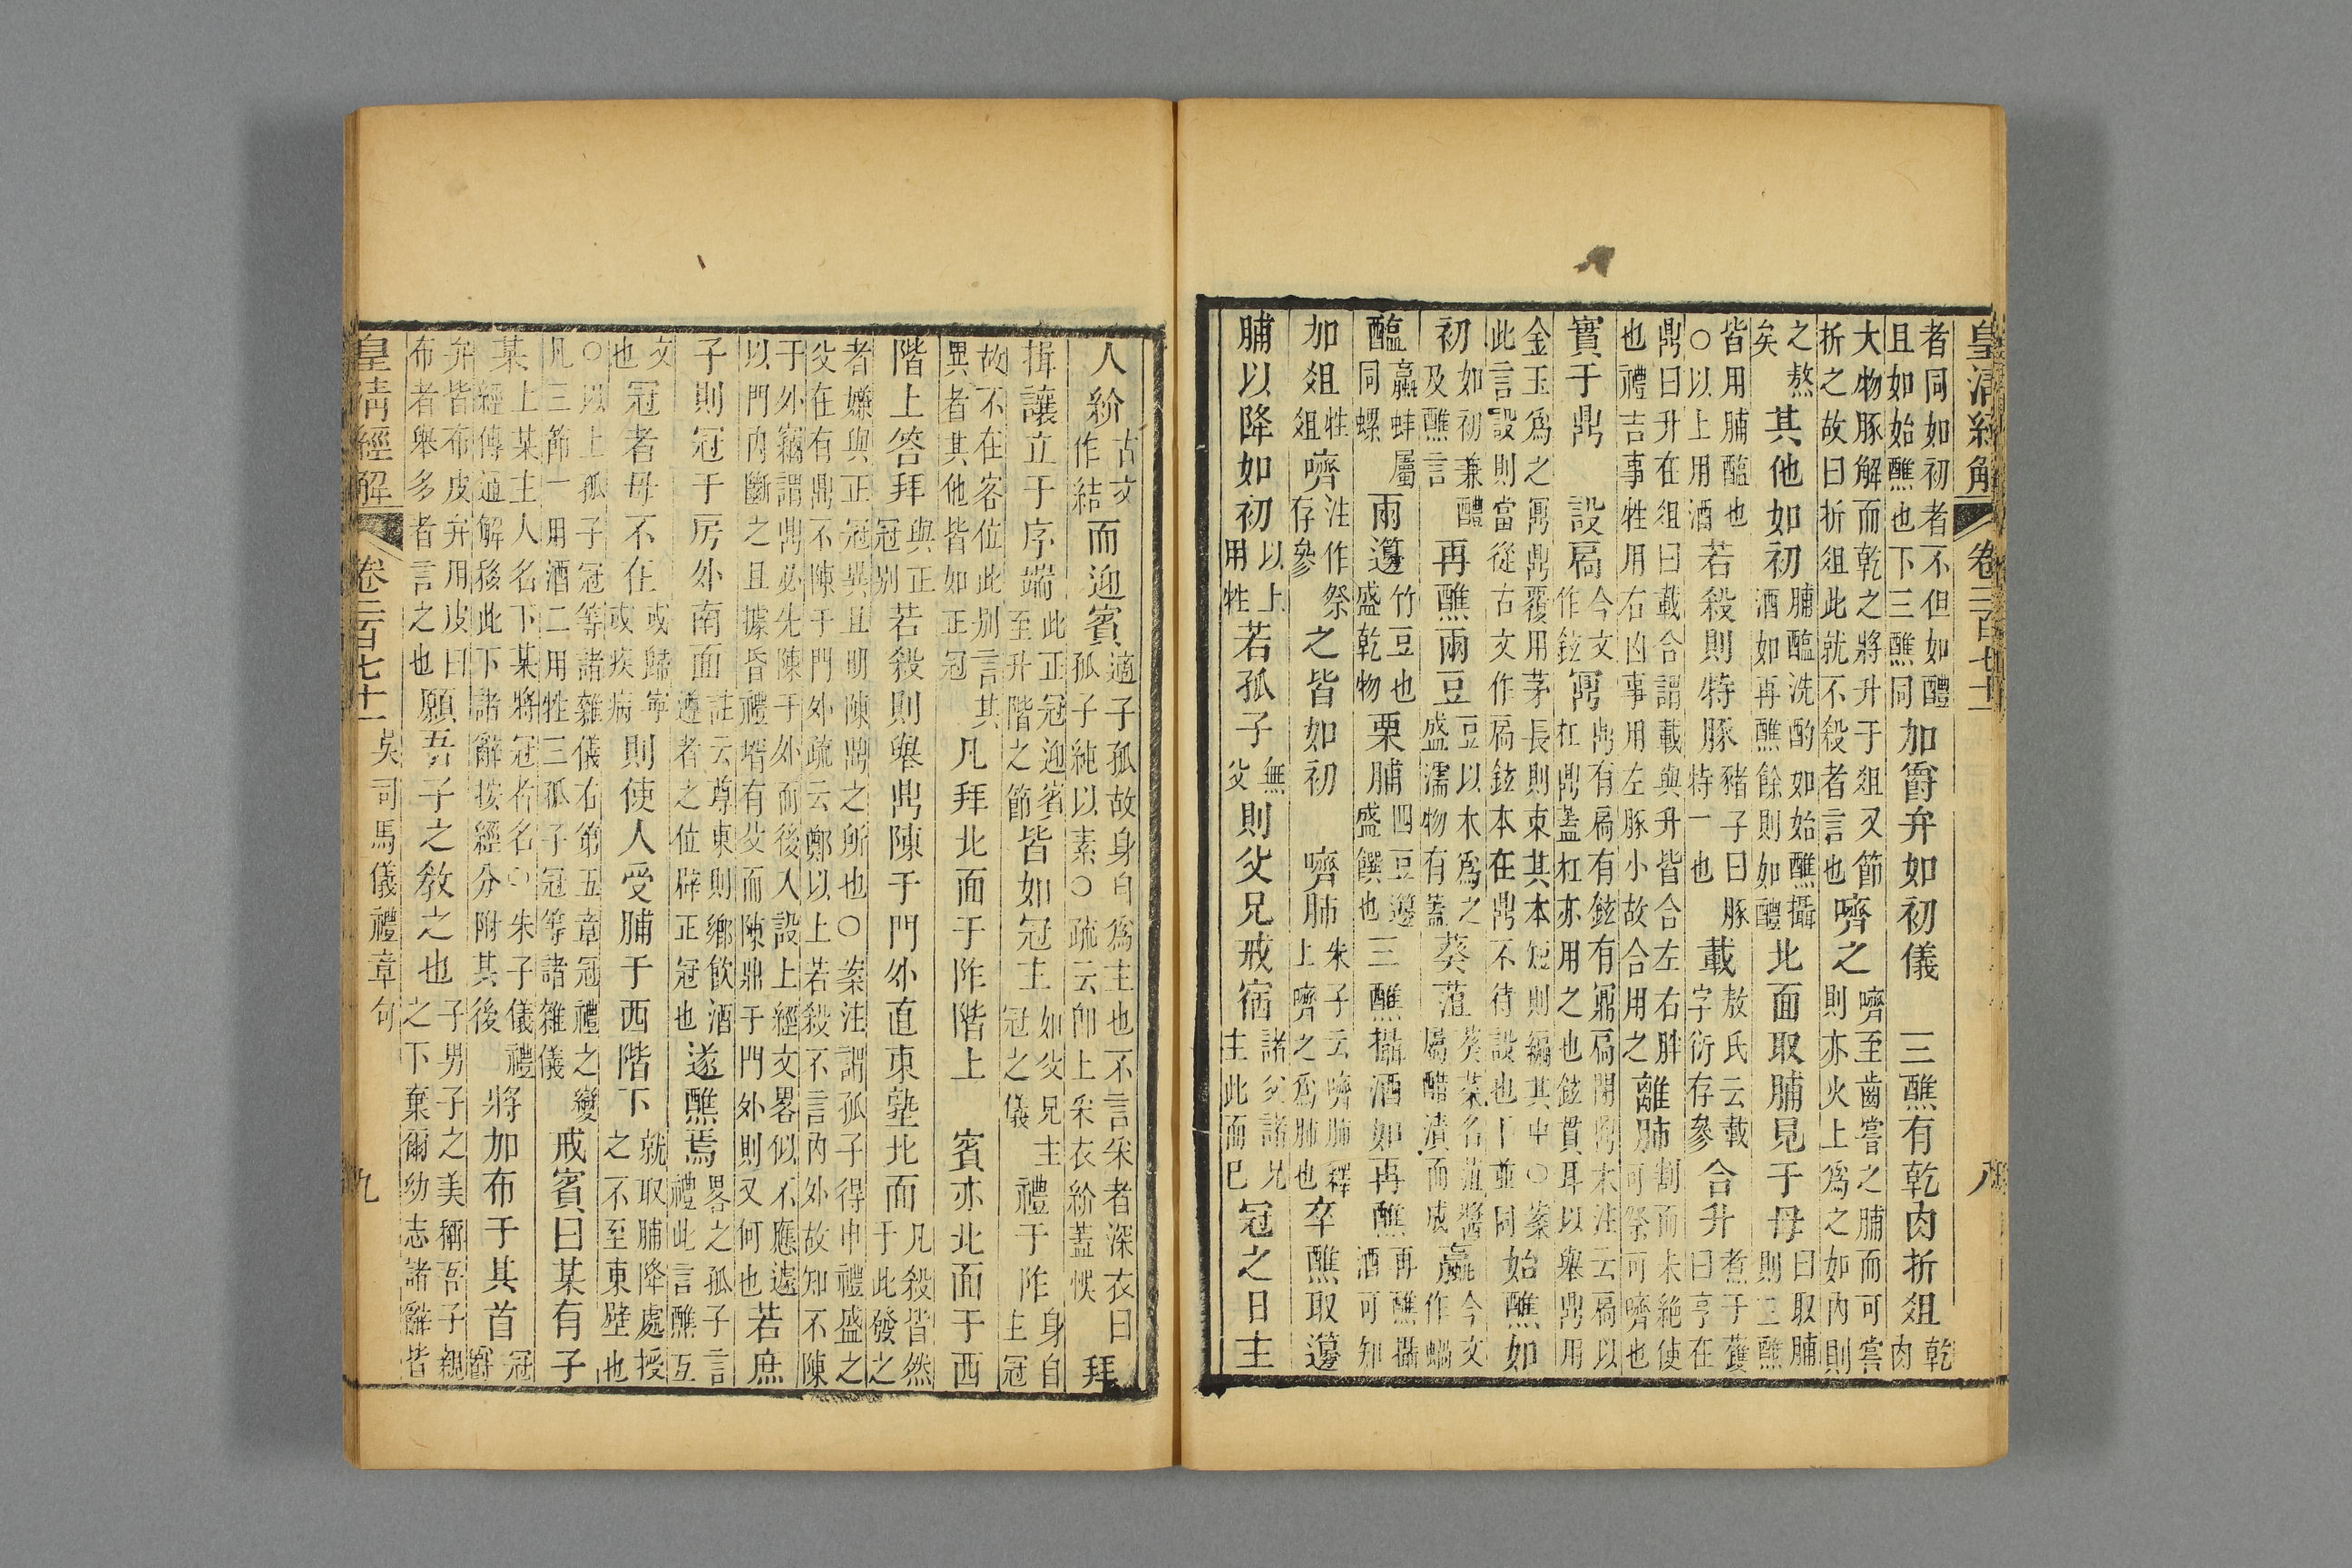 皇清經解 卷二百七十一 八
者同如初者不但如醴且如始醮也下三醮同加爵弁如初儀 三醮有乾肉折俎乾肉
大物豚解而乾之將升于俎又節折之故曰折俎此就不殺者言也嚌之嚌至齒嘗之脯而可嘗則亦火上為之如內則
之熬矣其他如初脯醢洗酌如始醮攝酒如再醮餘則如醴北面取脯見于母曰取脯則三醮
皆用脯醢也○以上用酒若殺則特豚豬子曰豚特一也載敖氏云載字衍存參合升煮于鑊曰亨在
鼎曰升在俎曰載合謂載與升皆合左右胖也禮吉事牲用右凶事用左豚小故合用之離肺割而未絶使可祭可嚌也
實于鼎 設扃今文作鉉鼏鼎有扃有鉉有鼏扃閒鼎末注云扃以杠鼎蓋杠亦用之也鉉貫耳以舉鼎用
金玉為之鼏鼎覆用茅長則束其本短則編其中○案此言設則當從古文作扃鉉本在鼎不待設也下並同始醮如
初如初兼醴及醮言再醮兩豆豆以木為之盛濡物有蓋葵菹葵菜名菹醬屬醋漬而成蠃今文作蝸
醢蠃蚌屬同螺兩籩竹豆也盛乾物栗脯四豆籩盛饌也三醮攝酒如再醮再醮攝酒可知
加俎牲俎嚌注作祭存參之皆如初 嚌肺朱子云嚌肺釋上嚌之為肺也卒醮取籩
脯以降如初以上用牲若孤子無父則父兄戒宿諸父諸兄主此而已冠之日主
人紒古文作結而迎賓適子孤故身自為主也不言采者深衣曰孤子純以素○疏云卽上采衣紒蓋悞拜
揖讓立于序端此正冠迎賓至升階之節皆如冠主如父兄主冠之儀禮于阼身自主冠
故不在客位此別言其異者其他皆如正冠凡拜北面于阼階上 賓亦北面于西
階上答拜與正冠別若殺則舉鼎陳于門外直東塾北面凡殺皆然于此發之
者嫌與正冠異且明陳鼎之所也○案注謂孤子得申禮盛之父在有鼎不陳于門外疏云鄭以上若殺不言內外故知不陳
于外竊謂鼎必先陳于外而後入設上經文畧似不應遠以門內斷之且據昏禮壻有父而陳鼎于門外則又何也若庶
子則冠于房外南面註云尊東則鄉飲酒遵者之位辟正冠也遂醮焉畧之孤子言禮此言醮互
文也冠者母不在或歸寧或疾病則使人受脯于西階下就取脯降處授之不至東壁也
○以上孤子冠等諸雜儀右第五章冠禮之變凡三節一用酒二用牲三孤子冠等諸雜儀戒賓曰某有子
某上某主人名下某將冠者名○朱子儀禮經傳通解移此下諸辭按經分附其後將加布于其首冠爵
弁皆布皮弁用皮曰布者舉多者言之也願吾子之教之也子男子之美稱吾子親之下棄爾幼志諸辭皆
皇清經解 卷二百七十一 吳司馬儀禮章句 九